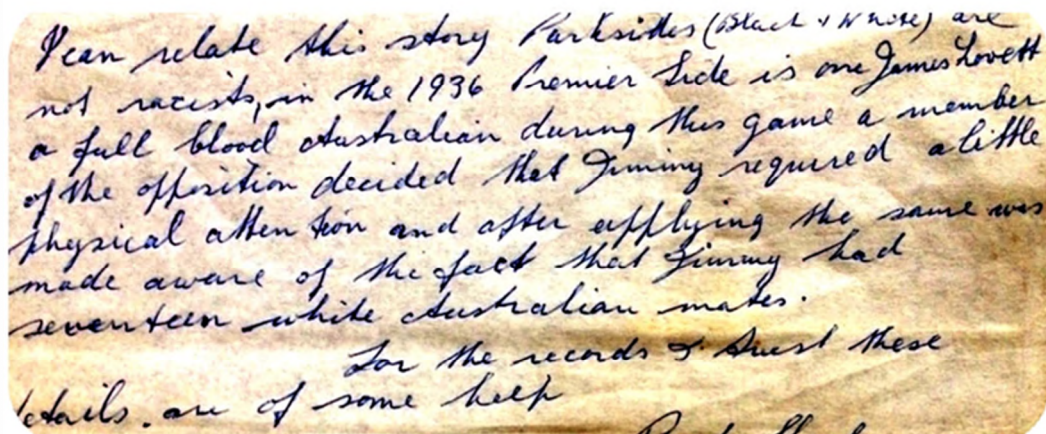 I can relate this story Parksides (Black & White) are
not racists, in the 1936 Premier Side is one James Lovett
a full blood Australian during this game a member
of the opposition decided that Jimmy required a little
physical attention and after applying the same was
made aware of the fact that Jimmy had
seventeen white Australian mates.
For the records I trust these
details. are of some help